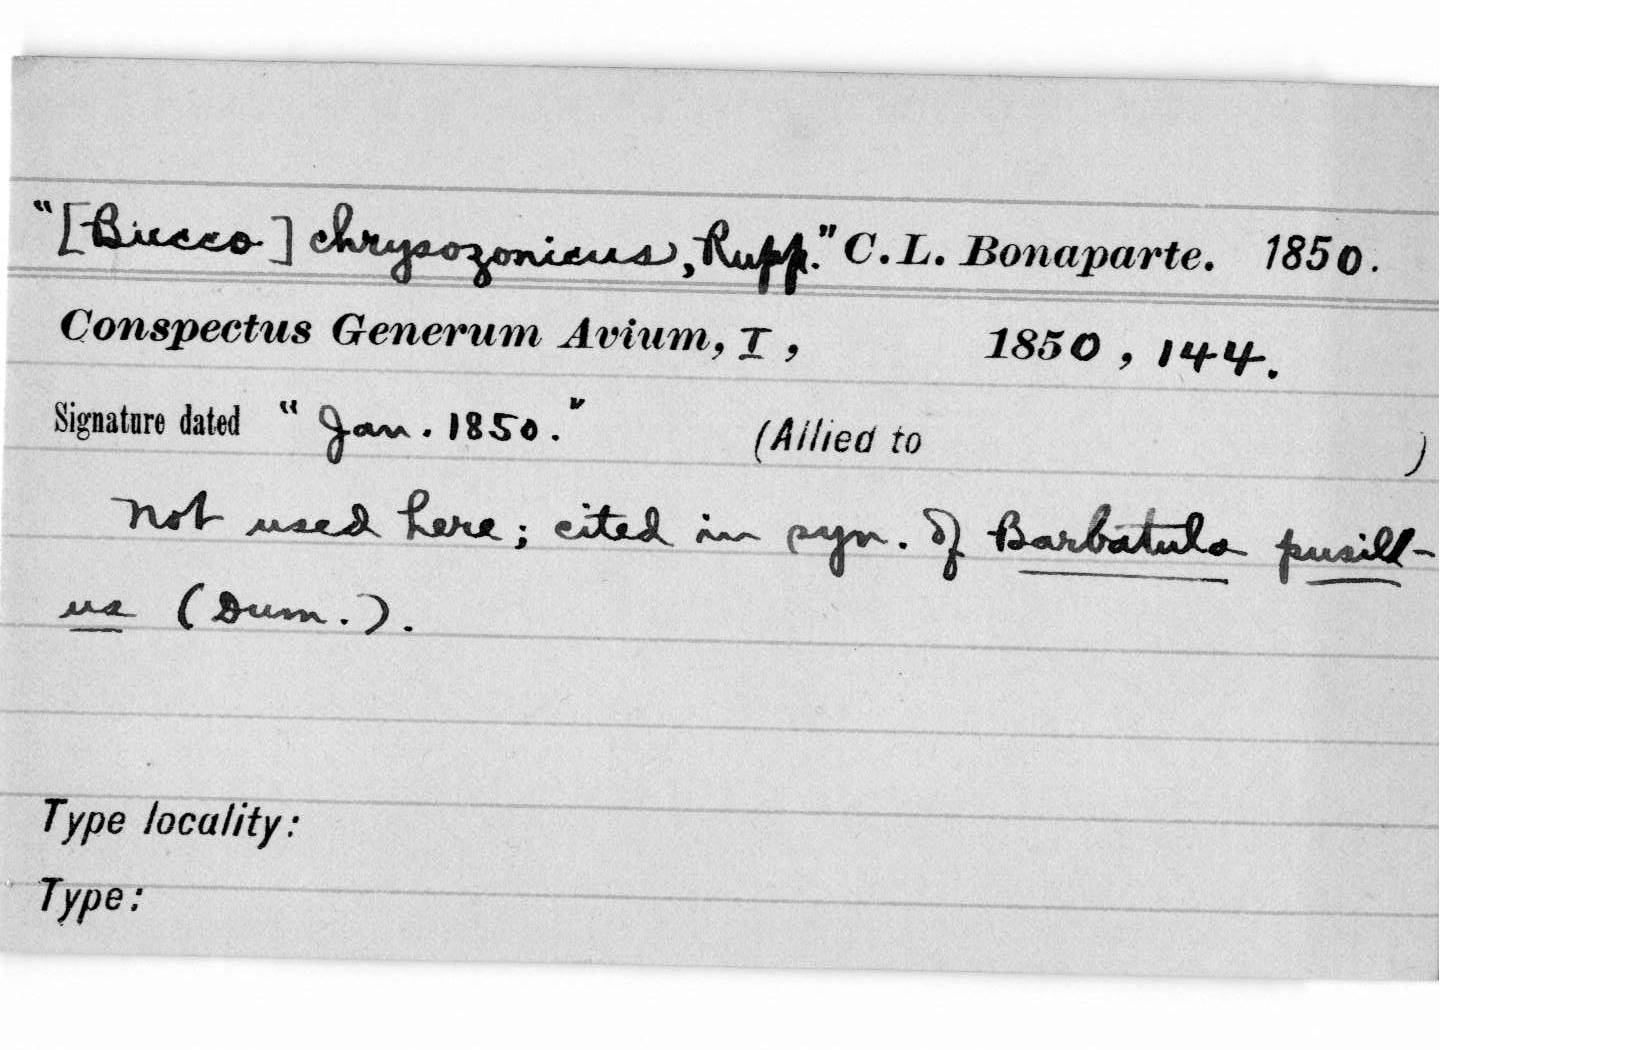 "[Bucco] chrysozonicus, Rupp." C.L. Bonaparte. 1850.
Conspectus Generum Avium, I, 1850, 144.
Signature dated "Jan. 1850." (Allied to )
Not used here; cited in syn. of Barbatula pusill-
us (Dum.).
Type locality:
Type: